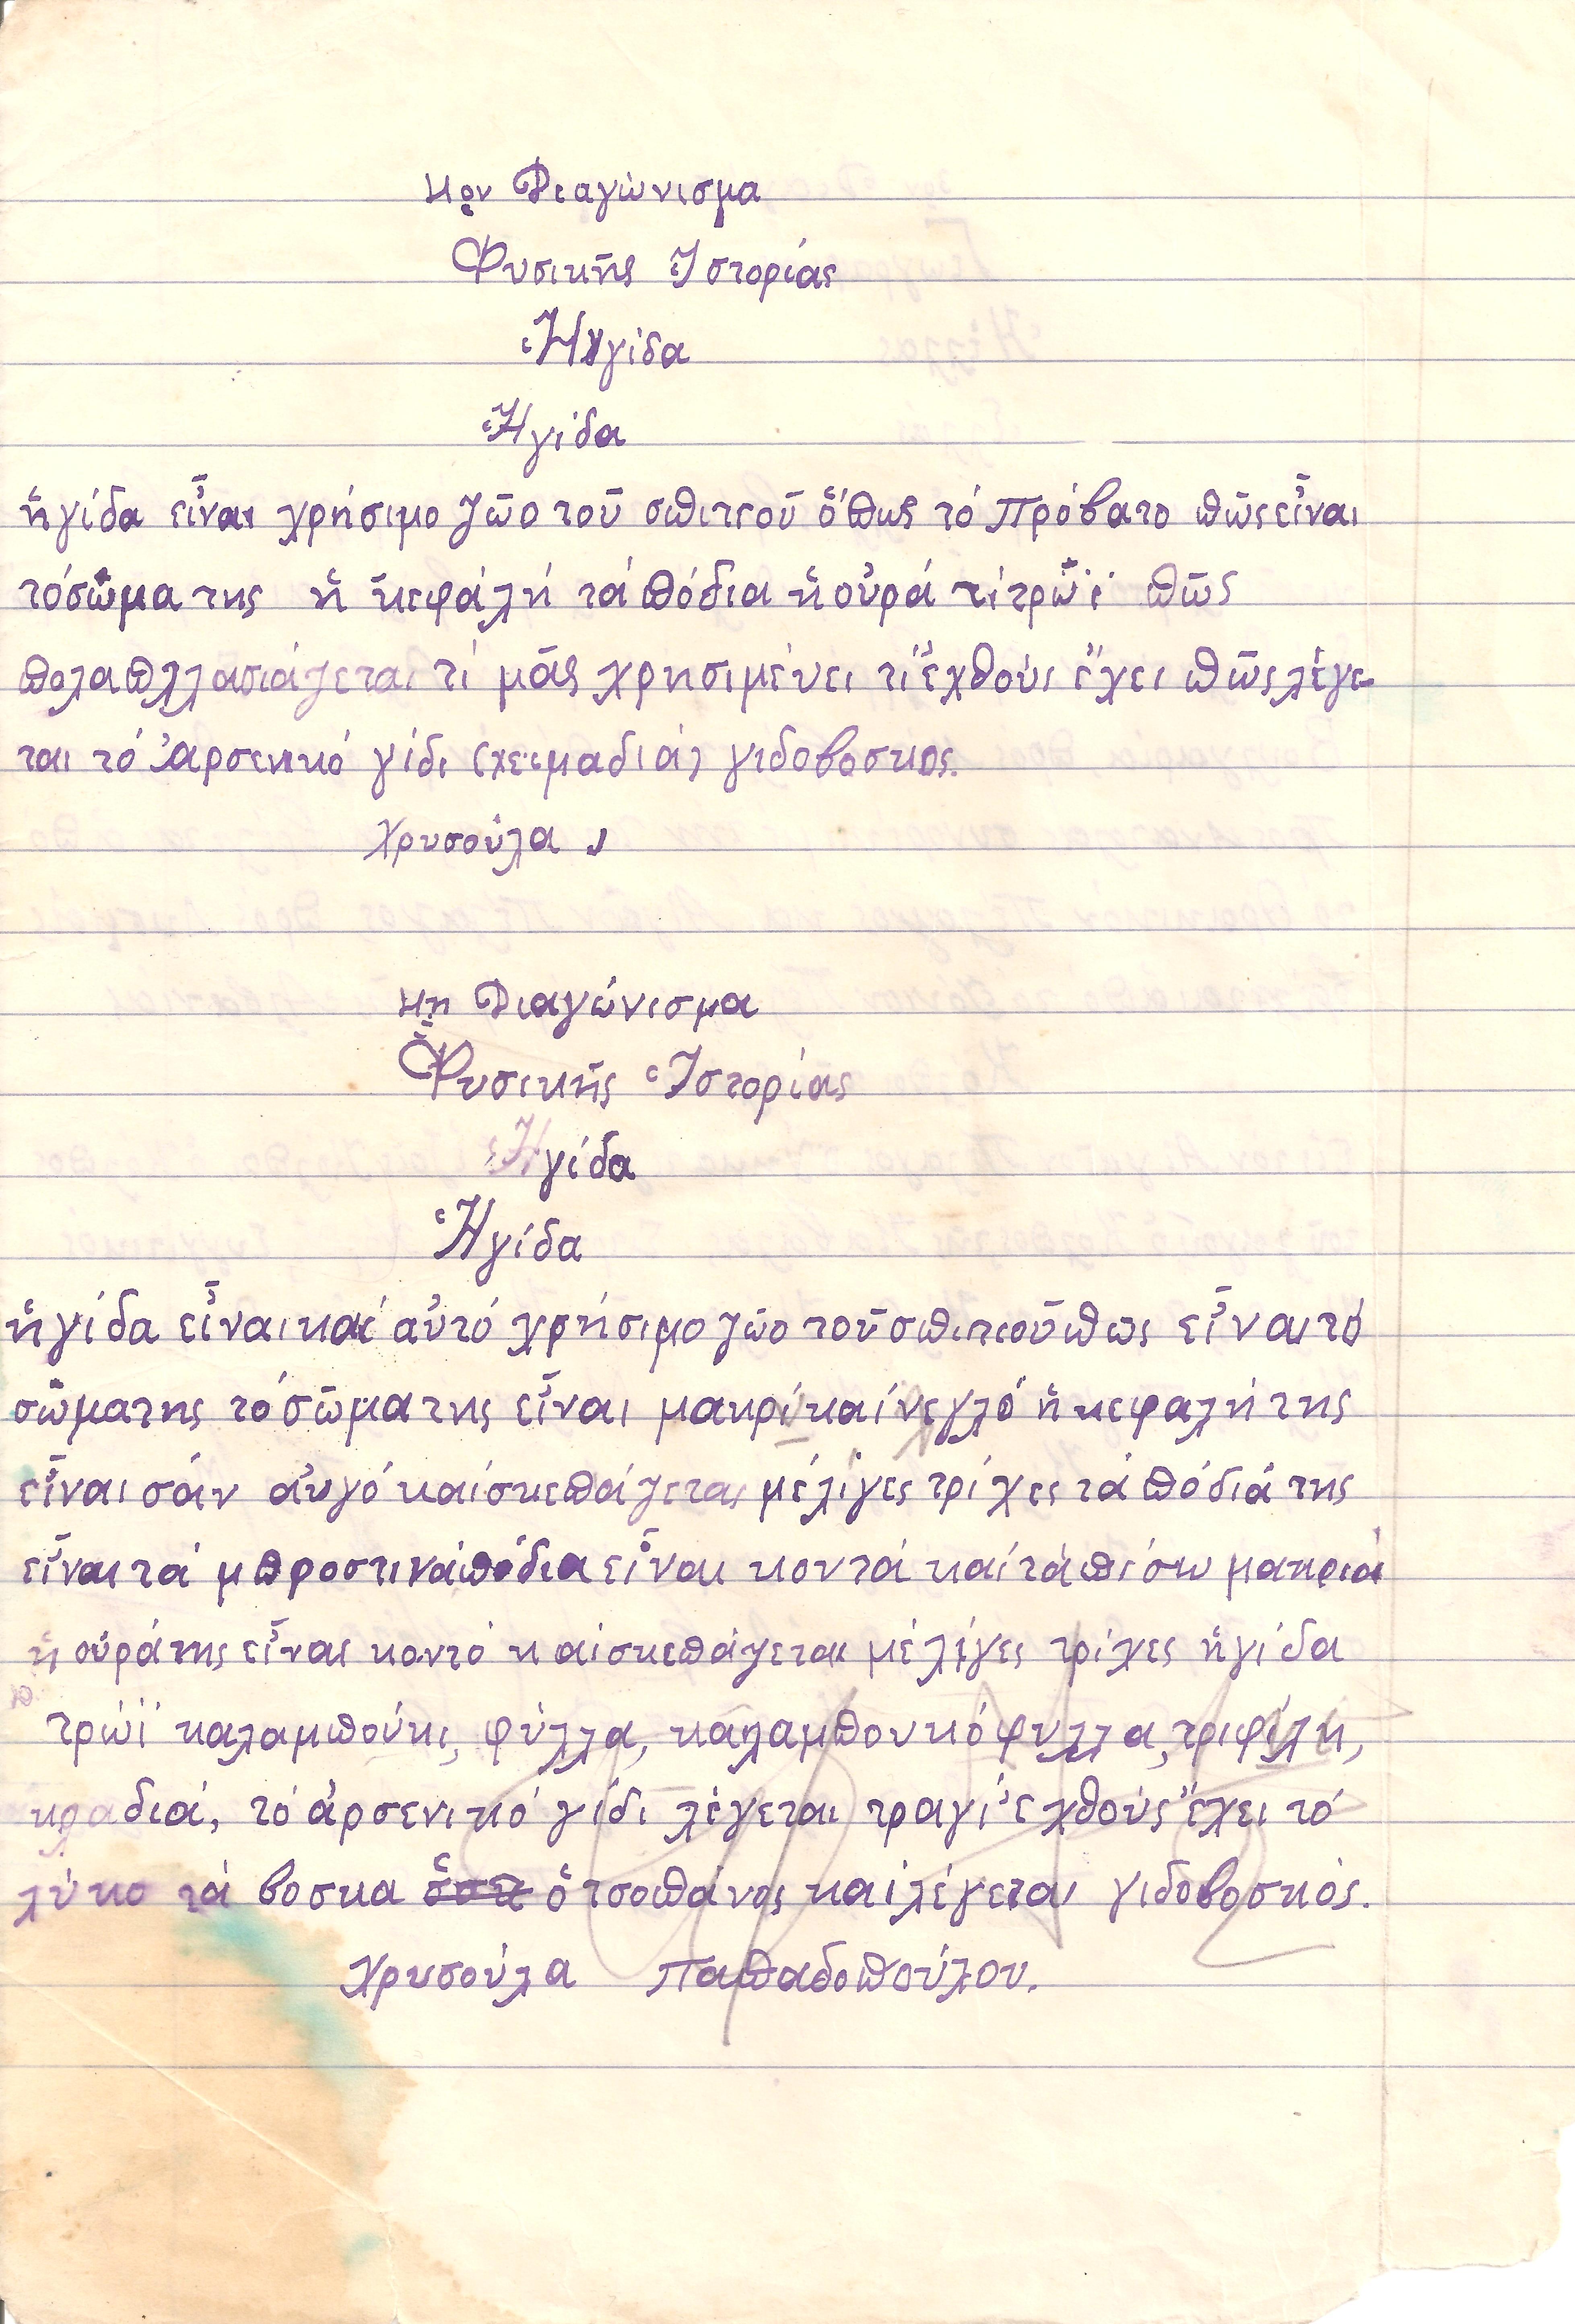 κον Διαγώνισμα
Φυσικῆς Ἱστορίας
Ἡ γίδα
Ἡγίδα
ἡγίδα εἶναι χρήσιμο ζῶο τοῦ σπιτιοῦ ὅπως τό Πρόβατο πῶςεἶναι
τόσῶμα της ἡ κεφάλή τά πόδια ἡ οὐρά τί τρῶϊ πῶς
πολαπλλασιάζεται τί μᾶς χρησιμένει τί ἔχθούς ἔχει πῶς λέγε-
ται τό ἀρσενικό γίδι (χειμαδιά) γιδοβοσκος.
Χρυσούλα
κη Διαγώνισμα
Φυσικῆς Ἱστορίας
Ἡγίδα
Ἡγίδα
ἡγίδα εἶναι καί αὐτό χρήσιμο ζῶο τοῦ σπιτιοῦ πως εἶναι τό
σῶματης τό σῶμα της εἶναι μακρί καί νεγλό ἡ κεφαλή της
εἶναι σάν αὐγό καί σκεπάζεται μέ λίγες τρίχες τά πόδιά της
εἶναι τά μπροστινάπόδια εἶναι κοντά καί τά πίσω μακριά
ἡ οὐράτης εἶναι κοντό καί σκεπάζεται μέ λίγες τρίχες ἡγίδα
τρώϊ καλαμπούκι, φύλλα, καλαμπουκόφυλλα, τριφίλη,
κλαδιά, τό ἀρσενικό γίδι λέγεται τραγί ἐχθούς ἔχει τό
λύκο τά βοσκα ὁ τσοπάνος καί λέγεται γιδοβοσκός.
Χρυσούλα Παπαδοπούλου.